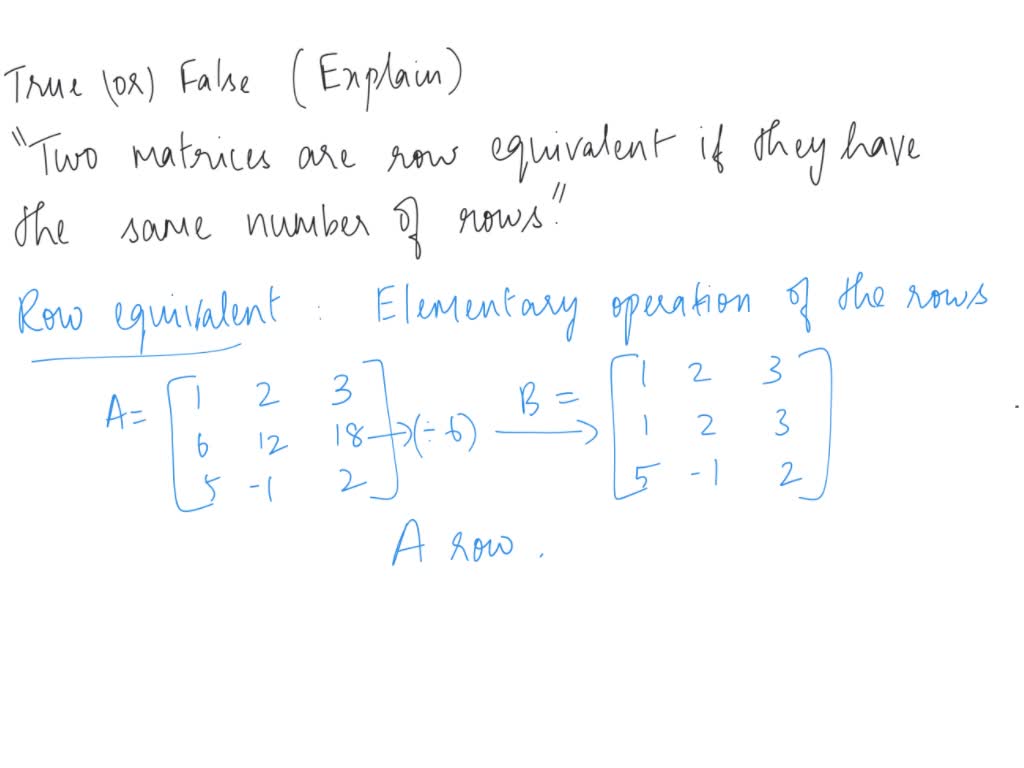 True (or) False (Explain)
"Two matrices are row equivalent if they have
the same number of rows."
Row equivalent : Elementary operation of the rows
A = [1 2 3
6 12 18 → (÷ 6)
5 -1 2] → B = [1 2 3
1 2 3
5 -1 2]
A row .